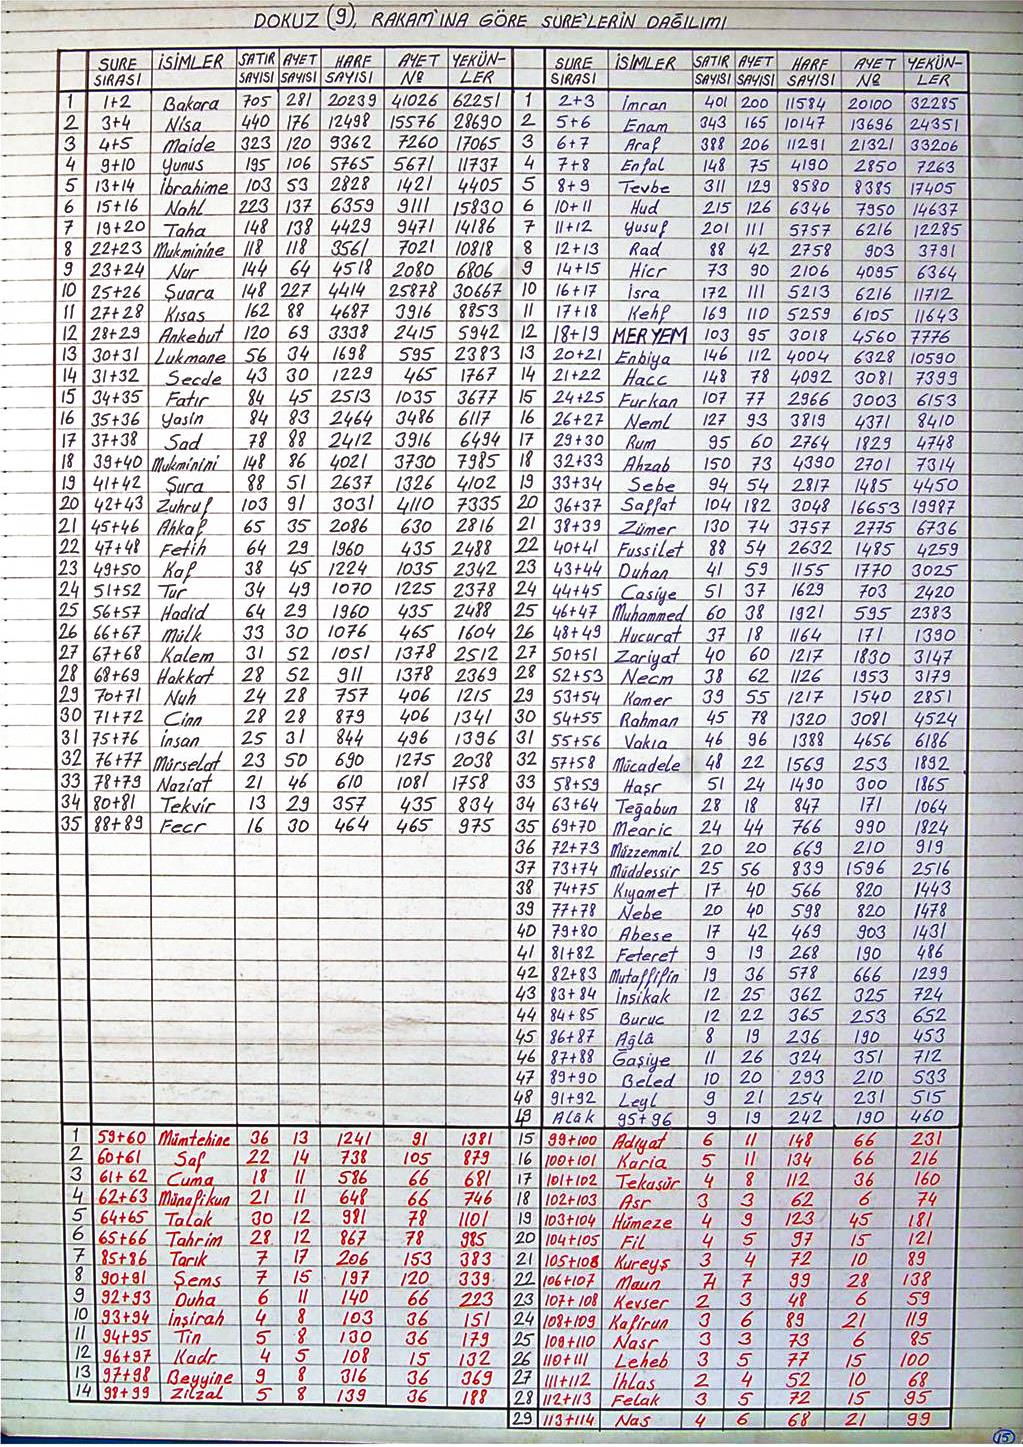 DOKUZ (9), RAKAM'INA GÖRE SURE'LERİN DAĞILIMI
SURE SIRASI İSİMLER SATIR SAYISI AYET SAYISI HARF SAYISI AYET Nº YEKÜNLER SURE SIRASI İSİMLER SATIR SAYISI AYET SAYISI HARF SAYISI AYET Nº YEKÜNLER
1 1+2 Bakara 705 281 20239 41026 62251 1 2+3 İmran 401 200 11584 20100 32285
2 3+4 Nisa 440 176 12498 15576 28690 2 5+6 Enam 343 165 10147 13696 24351
3 4+5 Maide 323 120 9362 7260 17065 3 6+7 Araf 388 206 11291 21321 33206
4 9+10 Yunus 195 106 5765 5671 11737 4 7+8 Enfal 148 75 4190 2850 7263
5 13+14 İbrahime 103 53 2828 1421 4405 5 8+9 Tevbe 311 129 8580 8385 17405
6 15+16 Nahl 223 137 6359 9111 15830 6 10+11 Hud 215 126 6346 7950 14637
7 19+20 Taha 148 138 4429 9471 14186 7 11+12 Yusuf 201 111 5757 6216 12285
8 22+23 Mukminine 118 118 3561 7021 10818 8 12+13 Rad 88 42 2758 903 3791
9 23+24 Nur 144 64 4518 2080 6806 9 14+15 Hicr 73 90 2106 4095 6364
10 25+26 Şuara 148 227 4414 25878 30667 10 16+17 İsra 172 111 5213 6216 11712
11 27+28 Kısas 162 88 4687 3916 8853 11 17+18 Kehf 169 110 5259 6105 11643
12 28+29 Ankebut 120 69 3338 2415 5942 12 18+19 MERYEM 103 95 3018 4560 7776
13 30+31 Lukmane 56 34 1698 595 2383 13 20+21 Enbiya 146 112 4004 6328 10590
14 31+32 Secde 43 30 1229 465 1767 14 21+22 Hacc 148 78 4092 3081 7399
15 34+35 Fatır 84 45 2513 1035 3677 15 24+25 Furkan 107 77 2966 3003 6153
16 35+36 Yasin 84 83 2464 3486 6117 16 26+27 Neml 127 93 3819 4371 8410
17 37+38 Sad 78 88 2412 3916 6494 17 29+30 Rum 95 60 2764 1829 4748
18 39+40 Mukminini 148 86 4021 3730 7985 18 32+33 Ahzab 150 73 4390 2701 7314
19 41+42 Şura 88 51 2637 1326 4102 19 33+34 Sebe 94 54 2817 1485 4450
20 42+43 Zuhruf 103 91 3031 4110 7335 20 36+37 Saffat 104 182 3048 16653 19987
21 45+46 Ahkaf 65 35 2086 630 2816 21 38+39 Zümer 130 74 3757 2775 6736
22 47+48 Fetih 64 29 1960 435 2488 22 40+41 Fussilet 88 54 2632 1485 4259
23 49+50 Kaf 38 45 1224 1035 2342 23 43+44 Duhan 41 59 1155 1770 3025
24 51+52 Tur 34 49 1070 1225 2378 24 44+45 Casiye 51 37 1629 703 2420
25 56+57 Hadid 64 29 1960 435 2488 25 46+47 Muhammed 60 38 1921 595 2383
26 66+67 Mülk 33 30 1076 465 1604 26 48+49 Hucurat 37 18 1164 171 1390
27 67+68 Kalem 31 52 1051 1378 2512 27 50+51 Zariyat 40 60 1217 1830 3147
28 68+69 Hakkat 28 52 911 1378 2369 28 52+53 Necm 38 62 1126 1953 3179
29 70+71 Nuh 24 28 757 406 1215 29 53+54 Kamer 39 55 1217 1540 2851
30 71+72 Cinn 28 28 879 406 1341 30 54+55 Rahman 45 78 1320 3081 4524
31 75+76 İnsan 25 31 844 496 1396 31 55+56 Vakıa 46 96 1388 4656 6186
32 76+77 Mürselat 23 50 690 1275 2038 32 57+58 Mücadele 48 22 1569 253 1892
33 78+79 Naziat 21 46 610 1081 1758 33 58+59 Haşr 51 24 1490 300 1865
34 80+81 Tekvir 13 29 357 435 834 34 63+64 Teğabun 28 18 847 171 1064
35 88+89 Fecr 16 30 464 465 975 35 69+70 Mearic 24 44 766 990 1824
36 72+73 Müzzemmil 20 20 669 210 919
37 73+74 Müddessir 25 56 839 1596 2516
38 74+75 Kıyamet 17 40 566 820 1443
39 77+78 Nebe 20 40 598 820 1478
40 79+80 Abese 17 42 469 903 1431
41 81+82 Feteret 9 19 268 190 486
42 82+83 Mutaffifin 19 36 578 666 1299
43 83+84 İnşikak 12 25 362 325 724
44 84+85 Buruc 12 22 365 253 652
45 86+87 Ağlâ 8 19 236 190 453
46 87+88 Ğaşiye 11 26 324 351 712
47 89+90 Beled 10 20 293 210 533
48 91+92 Leyl 9 21 254 231 515
19 Alâk 95+96 9 19 242 190 460
1 59+60 Mümtehine 36 13 1241 91 1381 15 99+100 Adiyat 6 11 148 66 231
2 60+61 Saf 22 14 738 105 879 16 100+101 Karia 5 11 134 66 216
3 61+62 Cuma 18 11 586 66 681 17 101+102 Tekasür 4 8 112 36 160
4 62+63 Münafikun 21 11 648 66 746 18 102+103 Asr 3 3 62 6 74
5 64+65 Talak 30 12 981 78 1101 19 103+104 Hümeze 4 9 123 45 181
6 65+66 Tahrim 28 12 867 78 985 20 104+105 Fil 4 5 97 15 121
7 85+86 Tarık 7 17 206 153 383 21 105+106 Kureyş 3 4 72 10 89
8 90+91 Şems 7 15 197 120 339 22 106+107 Maun 4 7 99 28 138
9 92+93 Duha 6 11 140 66 223 23 107+108 Kevser 2 3 48 6 59
10 93+94 İnşirah 4 8 103 36 151 24 108+109 Kafirun 3 6 89 21 119
11 94+95 Tin 5 8 130 36 179 25 109+110 Nasr 3 3 73 6 85
12 96+97 Kadr 4 5 108 15 132 26 110+111 Leheb 3 5 77 15 100
13 97+98 Beyyine 9 8 316 36 369 27 111+112 İhlas 2 4 52 10 68
14 98+99 Zilzal 5 8 139 36 188 28 112+113 Felak 3 5 72 15 95
29 113+114 Nas 4 6 68 21 99
15